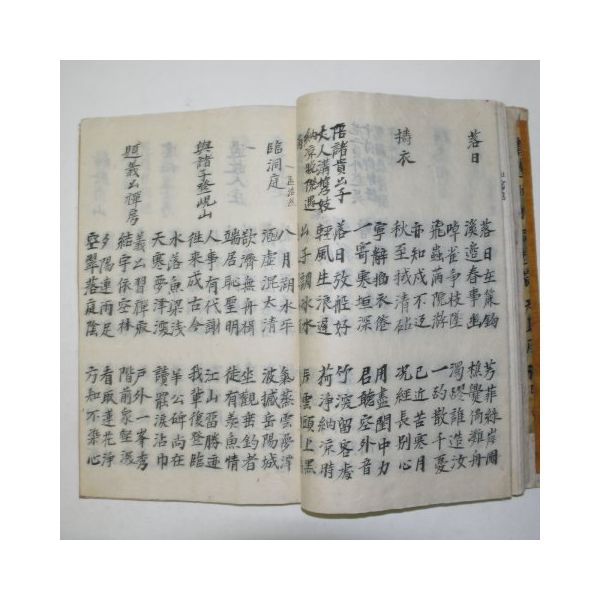 落日
落日在簾鉤 芳菲絲岸圃
溪邊春事幽 樵爨倚灘舟
啅雀爭枝墜 濁醪誰造汝
飛蟲滿院游 一酌散千憂
搗衣
亦知戍不返 已近苦寒月
秋至拭清砧 況經長別心
寧辭搗衣倦 用盡閨中力
一寄寒垣深 君聽空外音
陪諸貴公子 落日放舡好 竹深留客處
丈人溝携妓 輕風生浪遲 荷淨納凉時
納凉晚際遇 公子調冰水 片雲頭上黑
臨洞庭
八月湖水平 氣蒸雲夢澤
涵虛混太清 波撼岳陽城
欲濟無舟楫 坐觀垂釣者
端居恥聖明 徒有羨魚情
與諸子登峴山
人事有代謝 江山留勝迹
徃來成古今 我輩復登臨
水落魚梁淺 羊公碑尚在
天寒夢澤深 讀罷淚沾巾
題義公禪房
義公習禪寂 戶外一峯秀
結宇依空林 階前衆壑深
夕陽連雨足 看取蓮花淨
空翠落庭陰 方知不染心